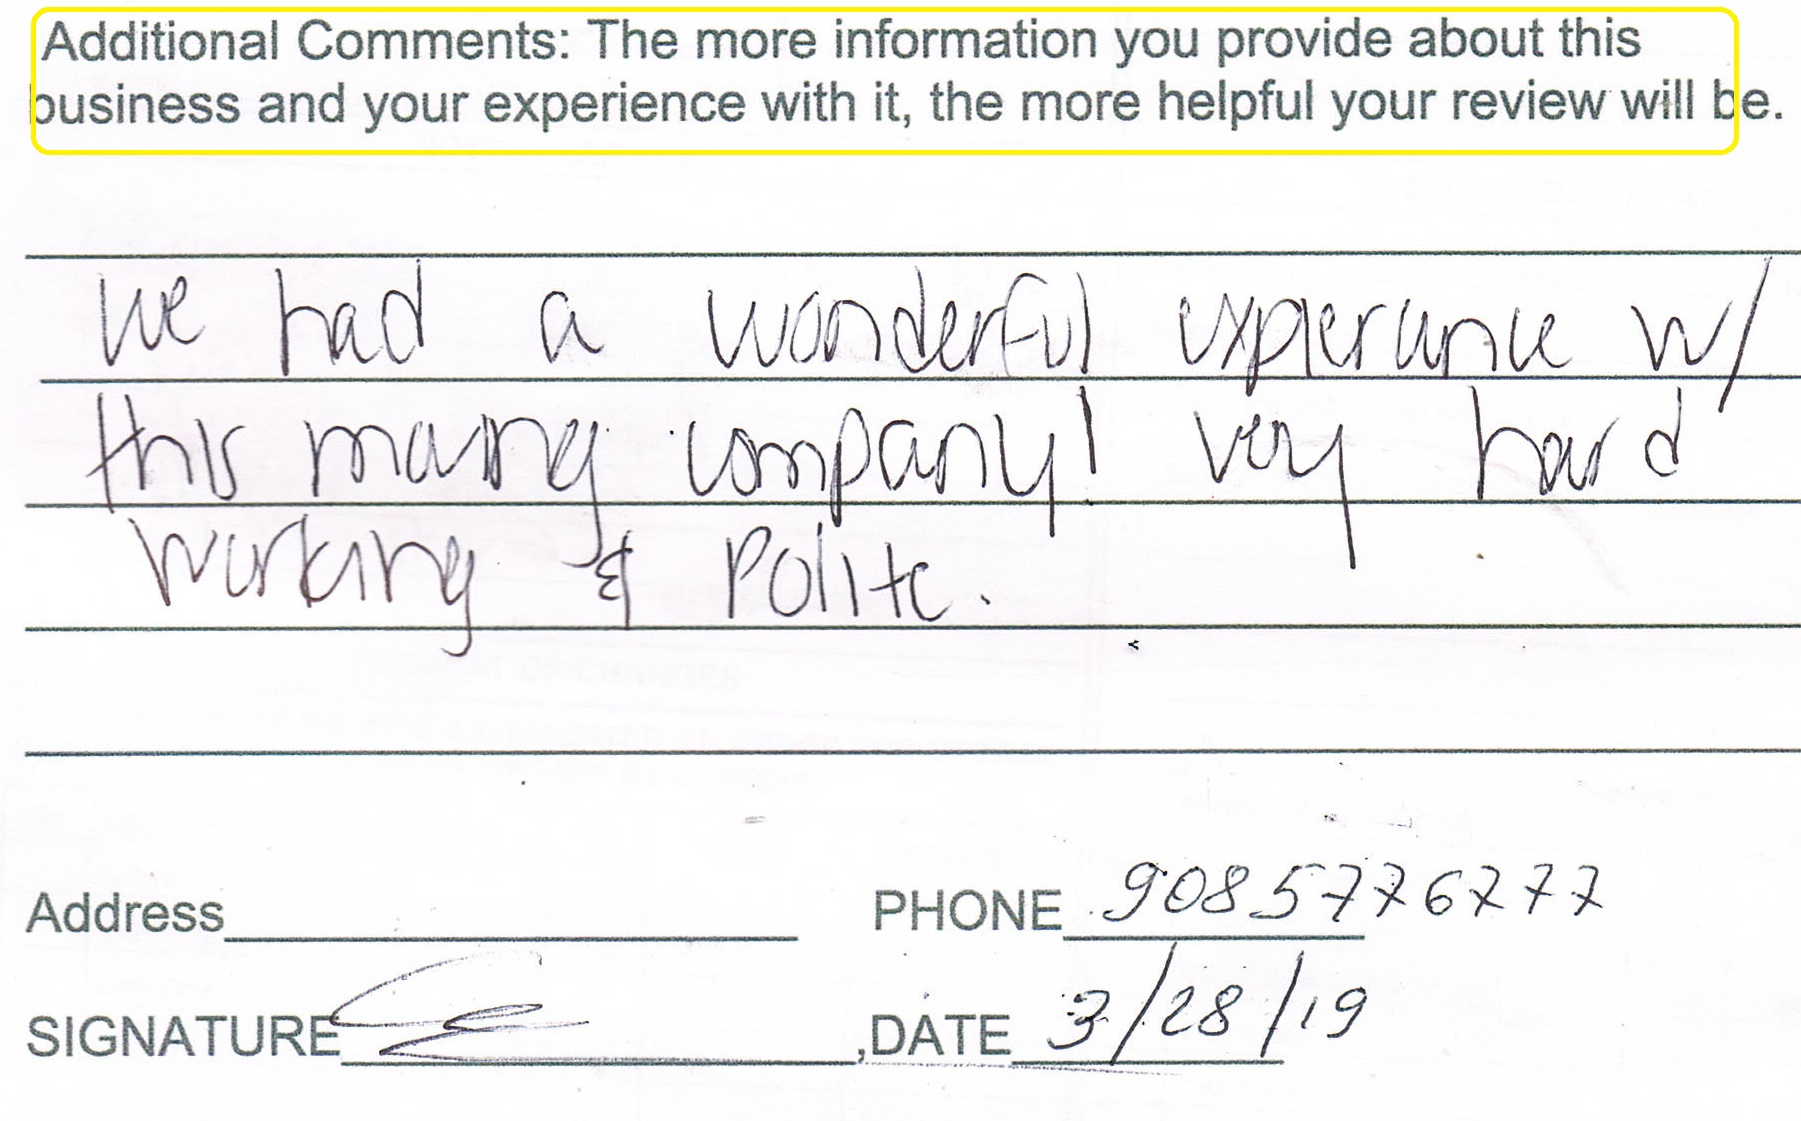 Additional Comments: The more information you provide about this
business and your experience with it, the more helpful your review will be.
We had a wonderful experience w/
this moving company! very hard
working & Polite.
Address PHONE 9085776777
SIGNATURE ,DATE 3/28/19